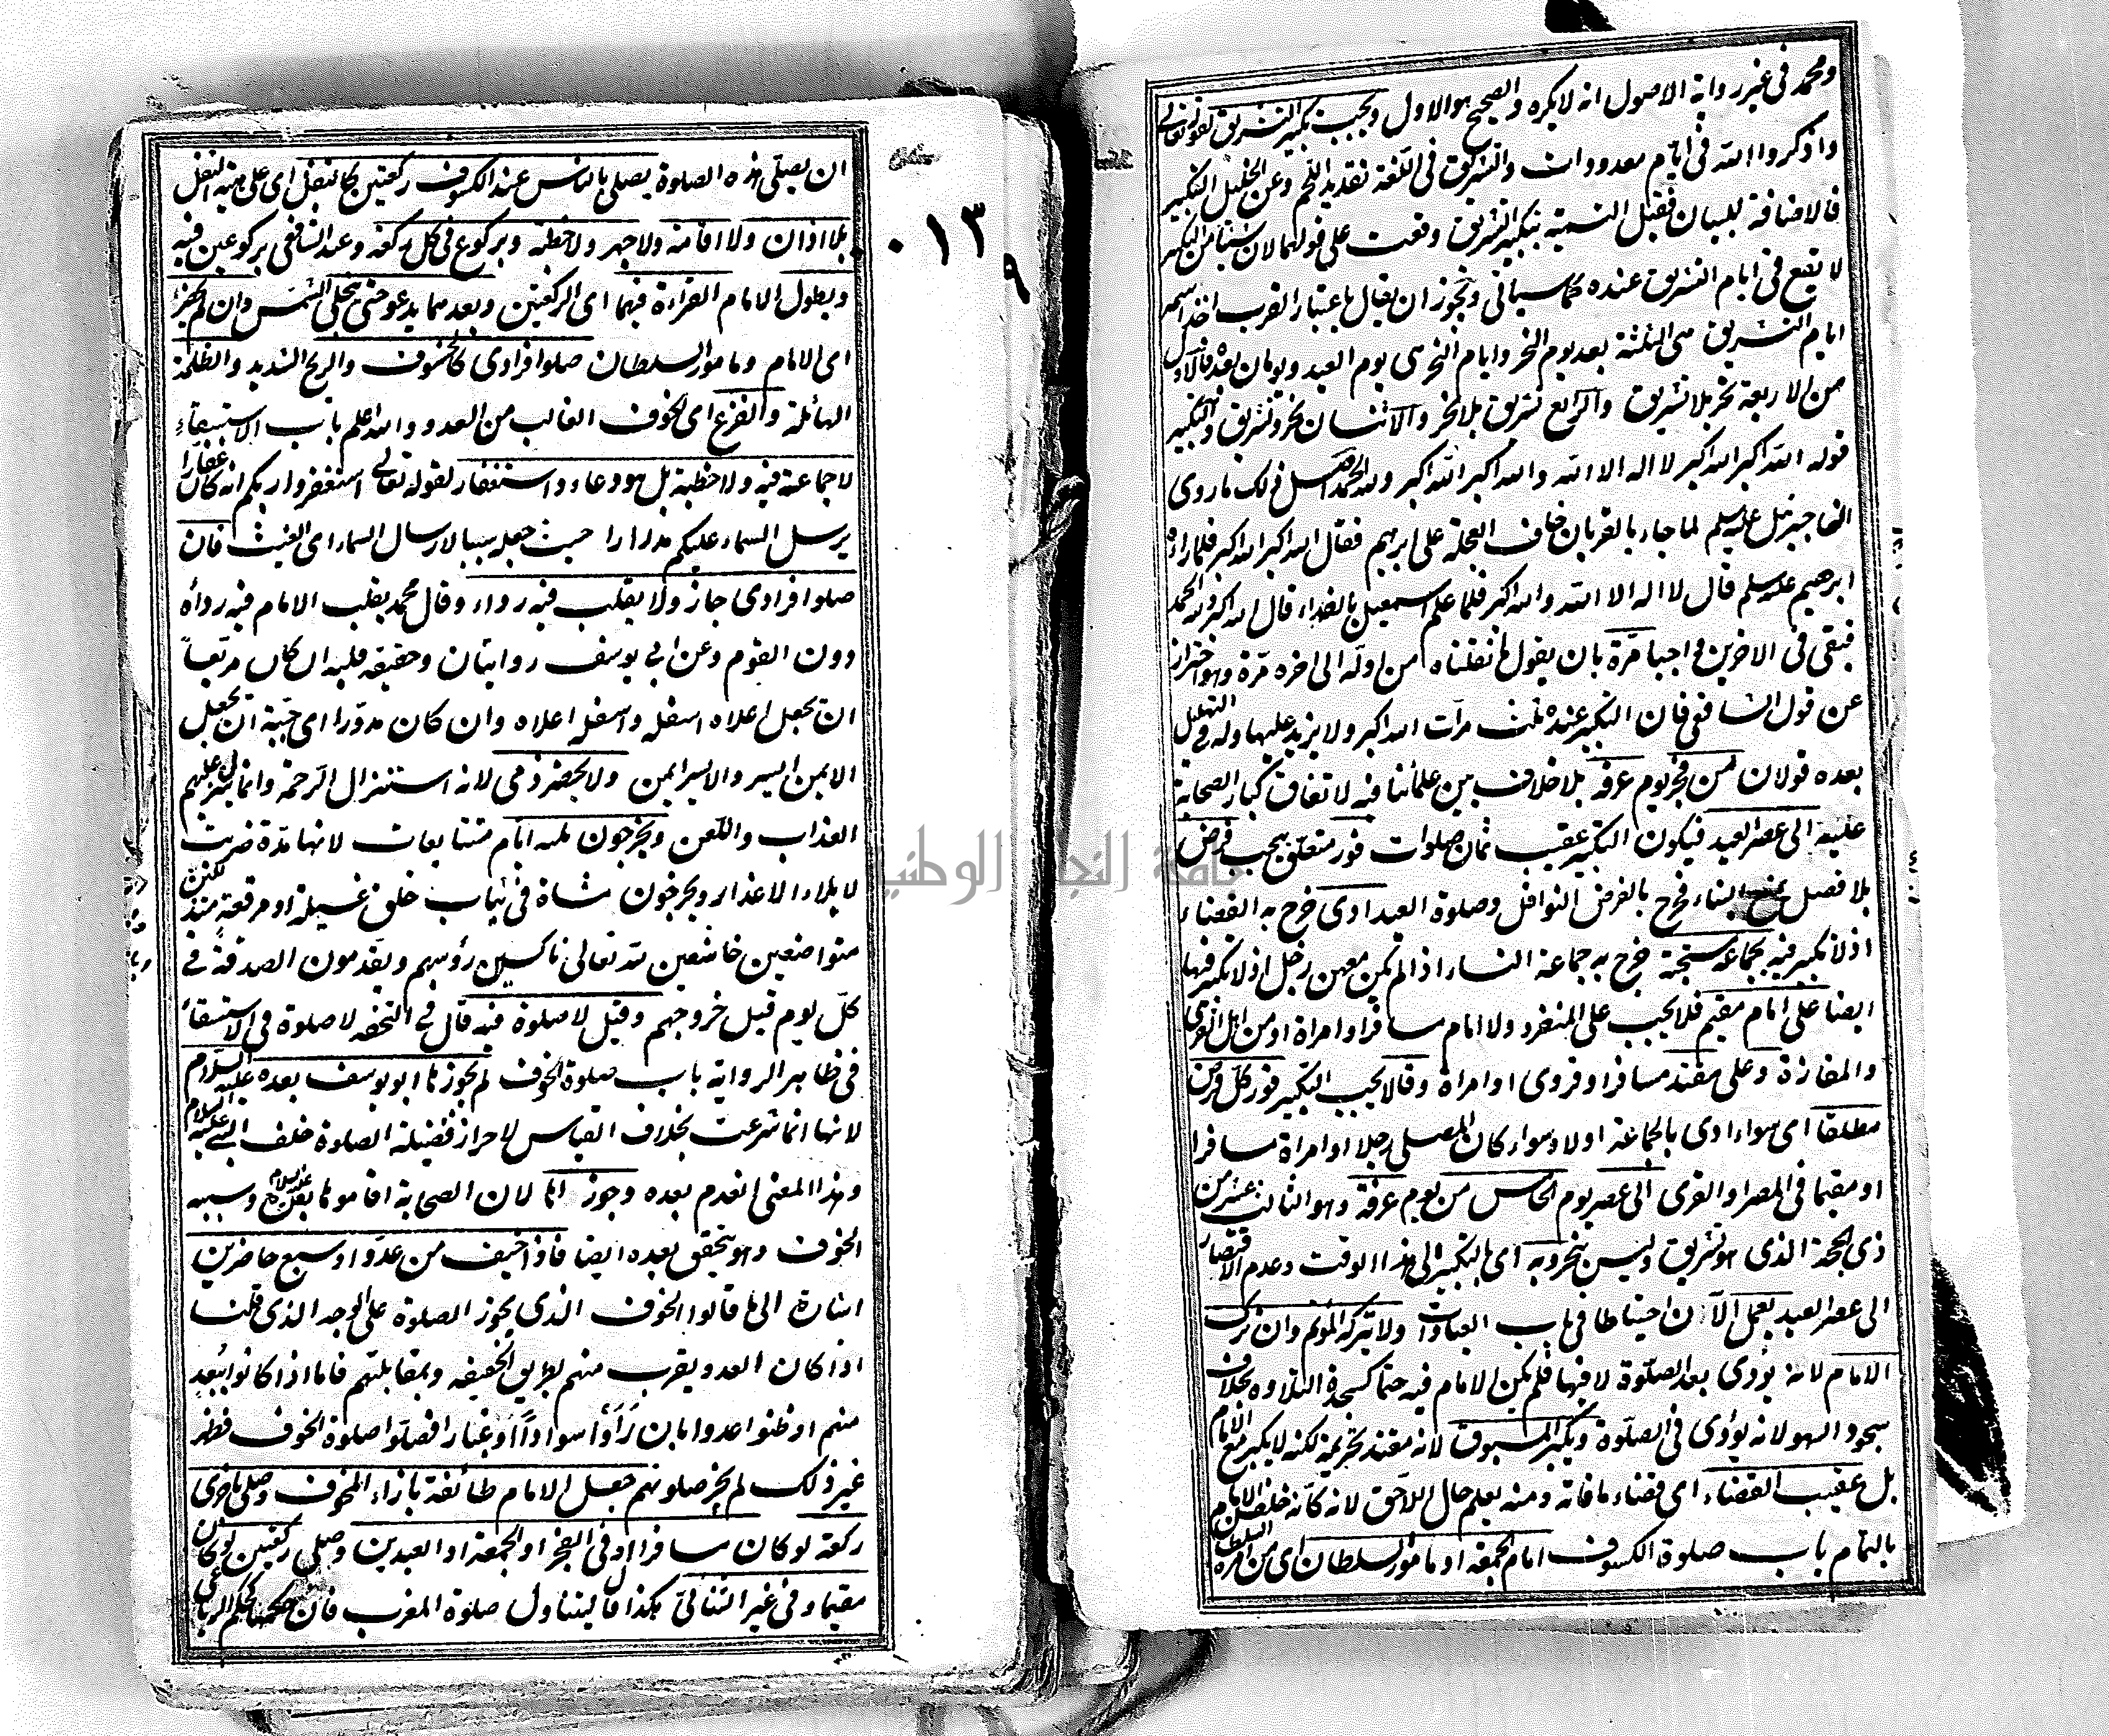 ومحمد في غير رواية الاصول انه لا يكره والصحيح هو الاول ويجب تكبير التشريق لقوله تعالى
واذكروا الله في ايام معدودات والتشريق في اللغة تقديد اللحم وعن الخليل التكبير
فالاضافة للبيان فقيل التسمية بتكبير التشريق وقعت على قولهما لان شيئا من التكبير
لا يقع في ايام التشريق عنده كما سياتي ويجوز ان يقال باعتبار القرب اخذ اسمه
ايام التشريق هي الثلثة بعد يوم النحر وايام النحر هي يوم العيد ويومان بعده فالاول
من الاربعة نحر بلا تشريق والرابع تشريق بلا نحر والاثنان نحر وتشريق والتكبير
قوله الله اكبر الله اكبر لا اله الا الله والله اكبر الله اكبر ولله الحمد اصل ذلك ما روي
ان جبريل عليه السلم لما جاء بالقربان خاف العجلة على ابرهيم فقال الله اكبر الله اكبر فلما راءه
ابرهيم عليه السلم قال لا اله الا الله والله اكبر فلما علم اسمعيل بالفداء قال الله اكبر ولله الحمد
فبقي في الاخرين واجبا مرة بان يقول ما نقلناه من اوله الى اخره مرة وهو احتراز
عن قول الشافعي فان التكبير عنده ثلث مرات الله اكبر ولا يزيد عليها وله في التهليل
بعده قولان من فجر يوم عرفة بلا خلاف بين علمائنا فيه لاتفاق كبار الصحابة
عليه الى عصر العيد فيكون التكبير عقيب ثمان صلوات فور متعلق بيجب فرض
بلا فصل يمنع البناء فخرج بالفرض النوافل وصلوة العيد ادي خرج به القضاء
اذ لا تكبير فيه بجماعة مستحبة خرج به جماعة النساء اذا لم يكن معهن رجل اذ لا تكبير فيها
ايضا على امام مقيم فلا يجب على المنفرد ولا امام مسافر او امراة او من اهل القرى
والمفازة وعلى مقتد مسافر او قروي او امراة وقالا يجب التكبير فور كل فرض
مطلقا اي سواء ادي بالجماعة او لا وسواء كان المصلي رجلا او امراة مسافرا
او مقيما في المصر او القرى الى عصر يوم الخامس من يوم عرفة وهو الثالث عشر من
ذي الحجة الذي هو تشريق وليس بنحر وبه اي بالتكبير الى هذا الوقت وعدم الاقتصار
الى عصر العيد يعمل الآن احتياطا في باب العبادات ولا يتركه المؤتم وان ترك
الامام لانه يؤدي بعد الصلوة لا فيها فلم يكن الامام فيه حتما كسجدة التلاوة بخلاف
سجود السهو لانه يؤدي في الصلوة ويكبر المسبوق لانه مقتد تحريمة لكنه لا يكبر مع الامام
بل عقيب القضاء اي قضاء ما فاته ومنه يعلم حال اللاحق لانه كانه خلف الامام
بالتمام باب صلوة الكسوف امام الجمعة او مامور السلطان اي من امره السلطان
ان يصلي هذه الصلوة يصلي بالناس عند الكسوف ركعتين كما يتنفل اي على هيئة النفل
بلا اذان ولا اقامة ولا جهر ولا خطبة وبركوع في كل ركعة وعند الشافعي بركوعين فيه
ويطول الامام القراءة فيهما اي الركعتين وبعدهما يدعو حتى تنجلي الشمس وان لم يحضر
اي الامام ومامور السلطان صلوا فرادى كالخسوف والريح الشديد والظلمة
الهائلة والفزع اي الخوف الغالب من العدو والله اعلم باب الاستسقاء
لا جماعة فيه ولا خطبة بل هو دعاء واستغفار لقوله تعالى استغفروا ربكم انه كان غفارا
يرسل السماء عليكم مدرارا حيث جعله سببا لارسال السماء اي الغيث فان
صلوا فرادى جاز ولا يقلب فيه رداء وقال محمد يقلب الامام فيه رداه
دون القوم وعن ابي يوسف روايتان وحقيقة قلبه ان كان مربعا
ان يجعل اعلاه اسفله واسفله اعلاه وان كان مدورا اي جبة ان يجعل
الايمن ايسر والايسر ايمن ولا يحضر ذمي لانه استنزال الرحمة وانما ينزل عليهم
العذاب واللعن ويخرجون ثلثة ايام متتابعات لانها مدة ضربت
لابلاء الاعذار ويخرجون مشاة في ثياب خلق غسيلة او مرقعة متذللين
متواضعين خاشعين لله تعالى ناكسين رؤسهم ويقدمون الصدقة في
كل يوم قبل خروجهم وقيل لا صلوة فيه قال في التحفة لا صلوة في الاستسقاء
في ظاهر الرواية باب صلوة الخوف لم يجوزها ابو يوسف بعده عليه السلام
لانها انما شرعت بخلاف القياس لاحراز فضيلة الصلوة خلف النبي عليه السلام
وهذا المعنى انعدم بعده وجوزاها لان الصحابة اقاموها بعده عليه السلام وسببه
الخوف وهو يتحقق بعده ايضا فاذا خيف من عدو او سبع حاضرين
اشارة الى ما قالوا الخوف الذي يجوز الصلوة على الوجه الذي قلنا
اذا كان العدو يقرب منهم بطريق الحقيقة وبمقابلتهم فاما اذا كانوا ببعد
منهم او ظنوا عدوا بان رأوا سوادا او غبارا فصلوا صلوة الخوف فظهر
غير ذلك لم يجز صلوتهم جعل الامام طائفة بازاء المخوف وصلى باخرى
ركعة لو كان مسافرا او في الفجر او الجمعة او العيدين وصلى ركعتين لو كان
مقيما وفي غير الثنائي هكذا قال ليتناول صلوة المغرب فان حكمها حكم الرباعي
١٣٩
جامعة النجاح الوطنية